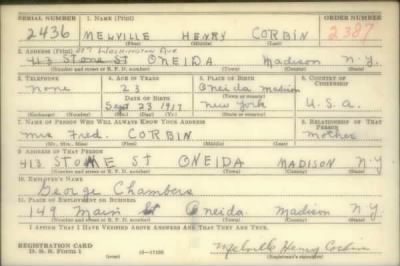 SERIAL NUMBER 1. NAME (Print) ORDER NUMBER
2436 MELVILLE HENRY CORBIN 2387
(First) (Middle) (Last)
2. ADDRESS (Print) 227 WASHINGTON AVE
413 Stone St ONEIDA Madison N.Y.
(Number and street or R. F. D. number) (Town) (County) (State)
3. TELEPHONE 4. AGE IN YEARS 5. PLACE OF BIRTH 6. COUNTRY OF CITIZENSHIP
none 23 Oneida, Madison
DATE OF BIRTH (Town or county)
Sept 23 1917 New York U.S.A.
(Exchange) (Number) (Mo.) (Day) (Yr.) (State or country)
7. NAME OF PERSON WHO WILL ALWAYS KNOW YOUR ADDRESS 8. RELATIONSHIP OF THAT PERSON
Mrs Fred. CORBIN Mother
(Mr., Mrs., Miss) (First) (Middle) (Last)
9. ADDRESS OF THAT PERSON
413 STONE ST ONEIDA MADISON N.Y
(Number and street or R. F. D. number) (Town) (County) (State)
10. EMPLOYER'S NAME
George Chambers
11. PLACE OF EMPLOYMENT OR BUSINESS
149 Main St Oneida, Madison N.Y.
(Number and street or R. F. D. number) (Town) (County) (State)
I AFFIRM THAT I HAVE VERIFIED ABOVE ANSWERS AND THAT THEY ARE TRUE.
REGISTRATION CARD
D. S. S. Form 1 16-17105 Melville Henry Corbin
(Registrant's signature)